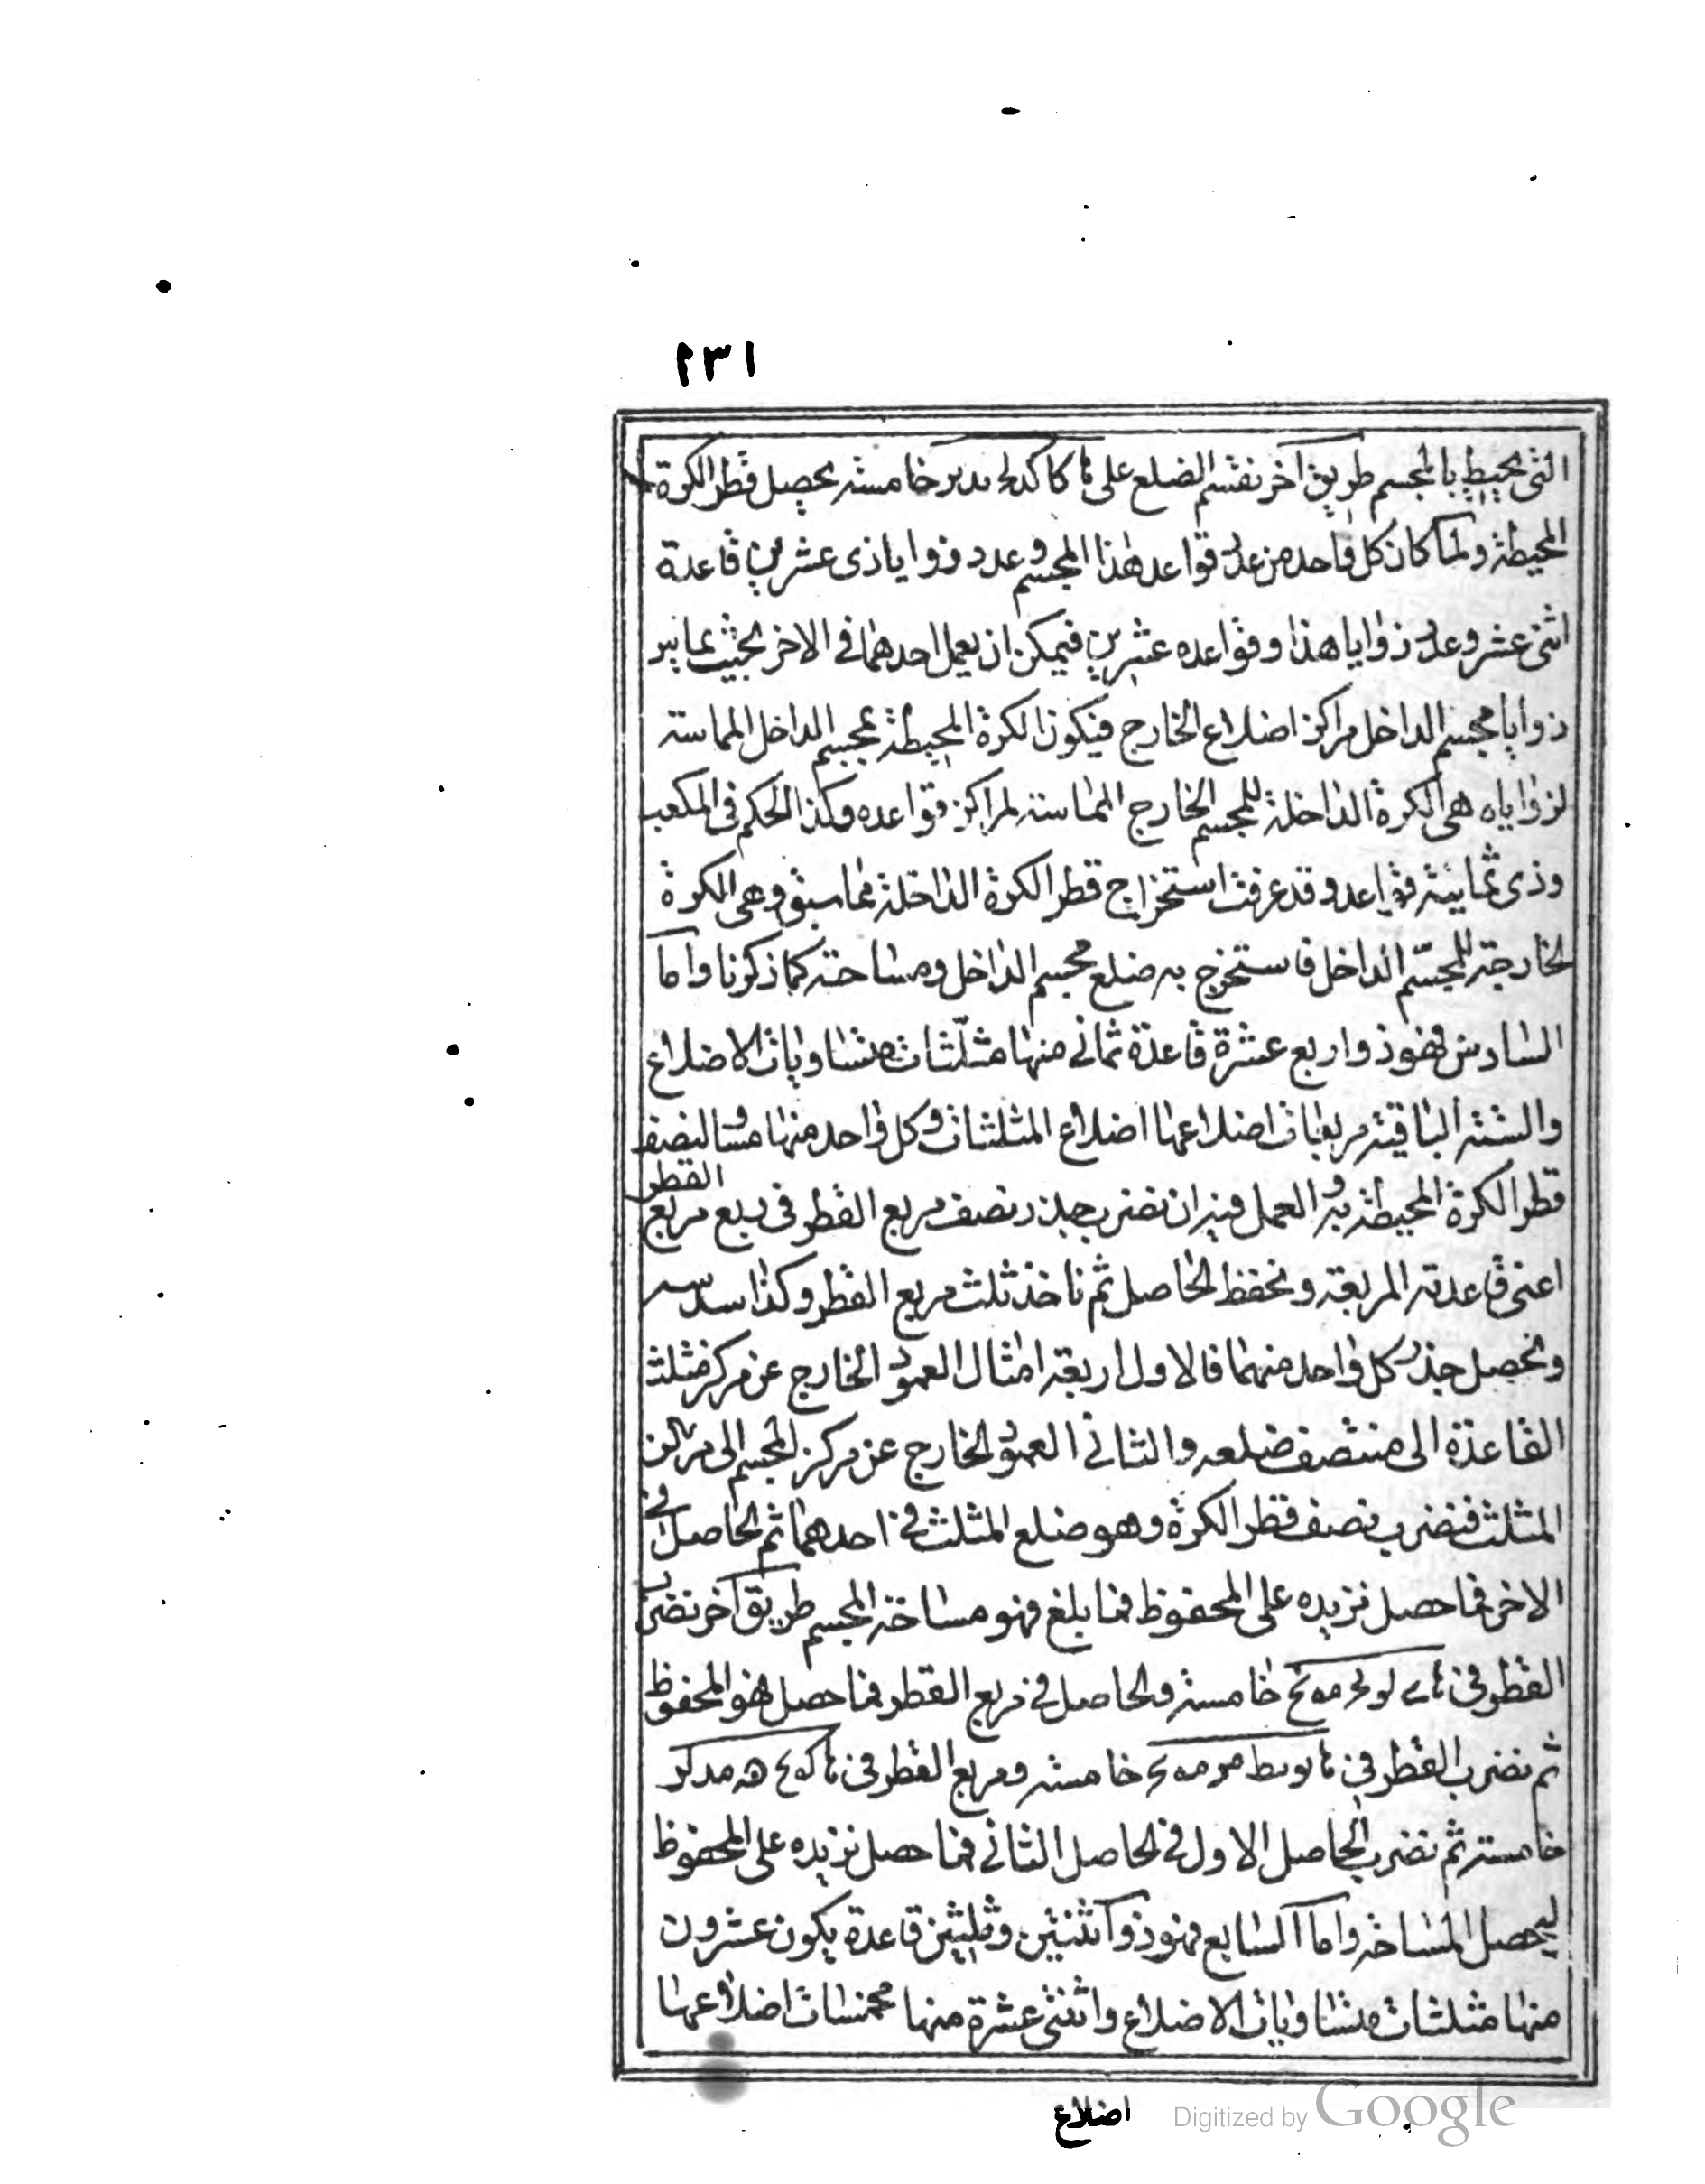 ١٣١
التى يحيط بالمجسم طريق آخر نقسم الضلع على خامسه يحصل قطر الكرة
المحيطة ولما كان كل واحد من عدد قواعد هذا المجسم وعدد زوايا ذى عشرين قاعدة
اثنى عشر وعدد زوايا هذا وقواعده عشرين فيمكن ان يعمل احدهما فى الاخر بحيث يماس
زوايا مجسم الداخل مراكز اضلاع الخارج فيكون الكرة المحيطة بمجسم الداخل المماسة
لزواياه هى الكرة الداخلة للمجسم الخارج المماسة لمراكز قواعده وكذا الحكم فى المكعب
وذى ثمانية قواعد وقد عرفت استخراج قطر الكرة الداخلة مما سبق وهى الكرة
الخارجة للمجسّم الداخل فاستخرج به ضلع مجسم الداخل ومساحته كما ذكرنا واما
السادس فهو ذو اربع عشرة قاعدة ثمانى منها مثلّثات متساويات الاضلاع
والستة الباقية مربعات اضلاعها اضلاع المثلثات وكل واحد منها مساو لنصف
قطر الكرة المحيطة به والعمل فيه ان نضرب جذر نصف مربع القطر فى ربع مربع القطر
اعنى قاعدته المربعة ونحفظ الحاصل ثم ناخذ ثلث مربع القطر وكذا سدسه
ونحصل جذر كل واحد منهما فالاول اربعة امثال العمود الخارج عن مركز مثلث
القاعدة الى منتصف ضلعه والثانى العمود الخارج عن مركز المجسم الى مركز
المثلث فنضرب نصف قطر الكرة وهو ضلع المثلث فى احدهما ثم الحاصل فى
الاخر فما حصل نزيده على المحفوظ فما بلغ فهو مساحة المجسم طريق آخر نضرب
القطر فى خامسة والحاصل فى مربع القطر فما حصل فهو المحفوظ
ثم نضرب القطر فى خامسه ومربع القطر فى
خامسة ثم نضرب الحاصل الاول فى الحاصل الثانى فما حصل نزيده على المحفوظ
ليحصل المساحة واما السابع فهو ذو اثنتين وثلثين قاعدة يكون عشرون
منها مثلثات متساويات الاضلاع واثنتى عشرة منها مخمسات اضلاعها
اضلاع
Digitized by Google